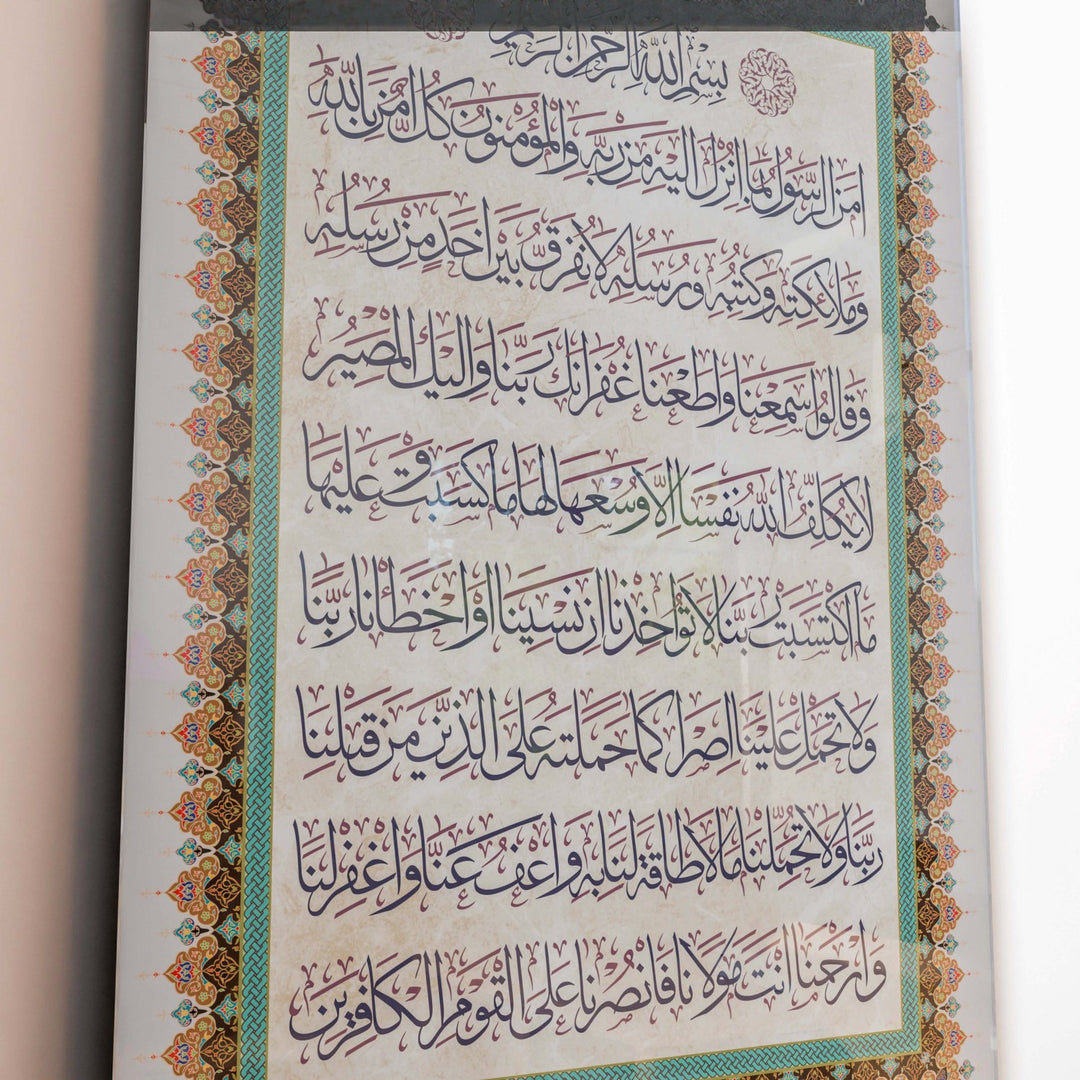 بِسْمِ اللهِ الرَّحْمٰنِ الرَّحِيمِ
اٰمَنَ الرَّسُولُ بِمَا اُنْزِلَ اِلَيْهِ مِنْ رَبِّهِ وَالْمُؤْمِنُونَ كُلٌّ اٰمَنَ بِاللهِ
وَمَلَائِكَتِهِ وَكُتُبِهِ وَرُسُلِهِ لَا نُفَرِّقُ بَيْنَ اَحَدٍ مِنْ رُسُلِهِ
وَقَالُوا سَمِعْنَا وَاَطَعْنَا غُفْرَانَكَ رَبَّنَا وَاِلَيْكَ الْمَصِيرُ
لَا يُكَلِّفُ اللهُ نَفْسًا اِلَّا وُسْعَهَا لَهَا مَا كَسَبَتْ وَعَلَيْهَا
مَا اكْتَسَبَتْ رَبَّنَا لَا تُؤَاخِذْنَا اِنْ نَسِينَا اَوْ اَخْطَأْنَا رَبَّنَا
وَلَا تَحْمِلْ عَلَيْنَا اِصْرًا كَمَا حَمَلْتَهُ عَلَى الَّذِينَ مِنْ قَبْلِنَا
رَبَّنَا وَلَا تُحَمِّلْنَا مَا لَا طَاقَةَ لَنَا بِهِ وَاعْفُ عَنَّا وَاغْفِرْ لَنَا
وَارْحَمْنَا اَنْتَ مَوْلَانَا فَانْصُرْنَا عَلَى الْقَوْمِ الْكَافِرِينَ